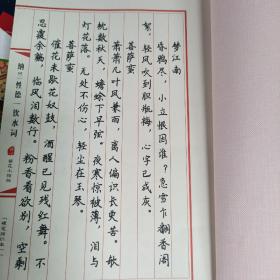 梦江南
昏鸦尽，小立恨因谁？急雪乍翻香阁
絮，轻风吹到胆瓶梅，心字已成灰。
菩萨蛮
萧萧几叶风兼雨，离人偏识长更苦。欹
枕数秋天，蟾蜍下早弦。夜寒惊被薄，泪与
灯花落。无处不伤心，轻尘在玉琴。
菩萨蛮
催花未歇花奴鼓，酒醒已见残红舞。不
忍覆余觞，临风泪数行。粉香看欲别，空剩
纳兰性德 饮水词